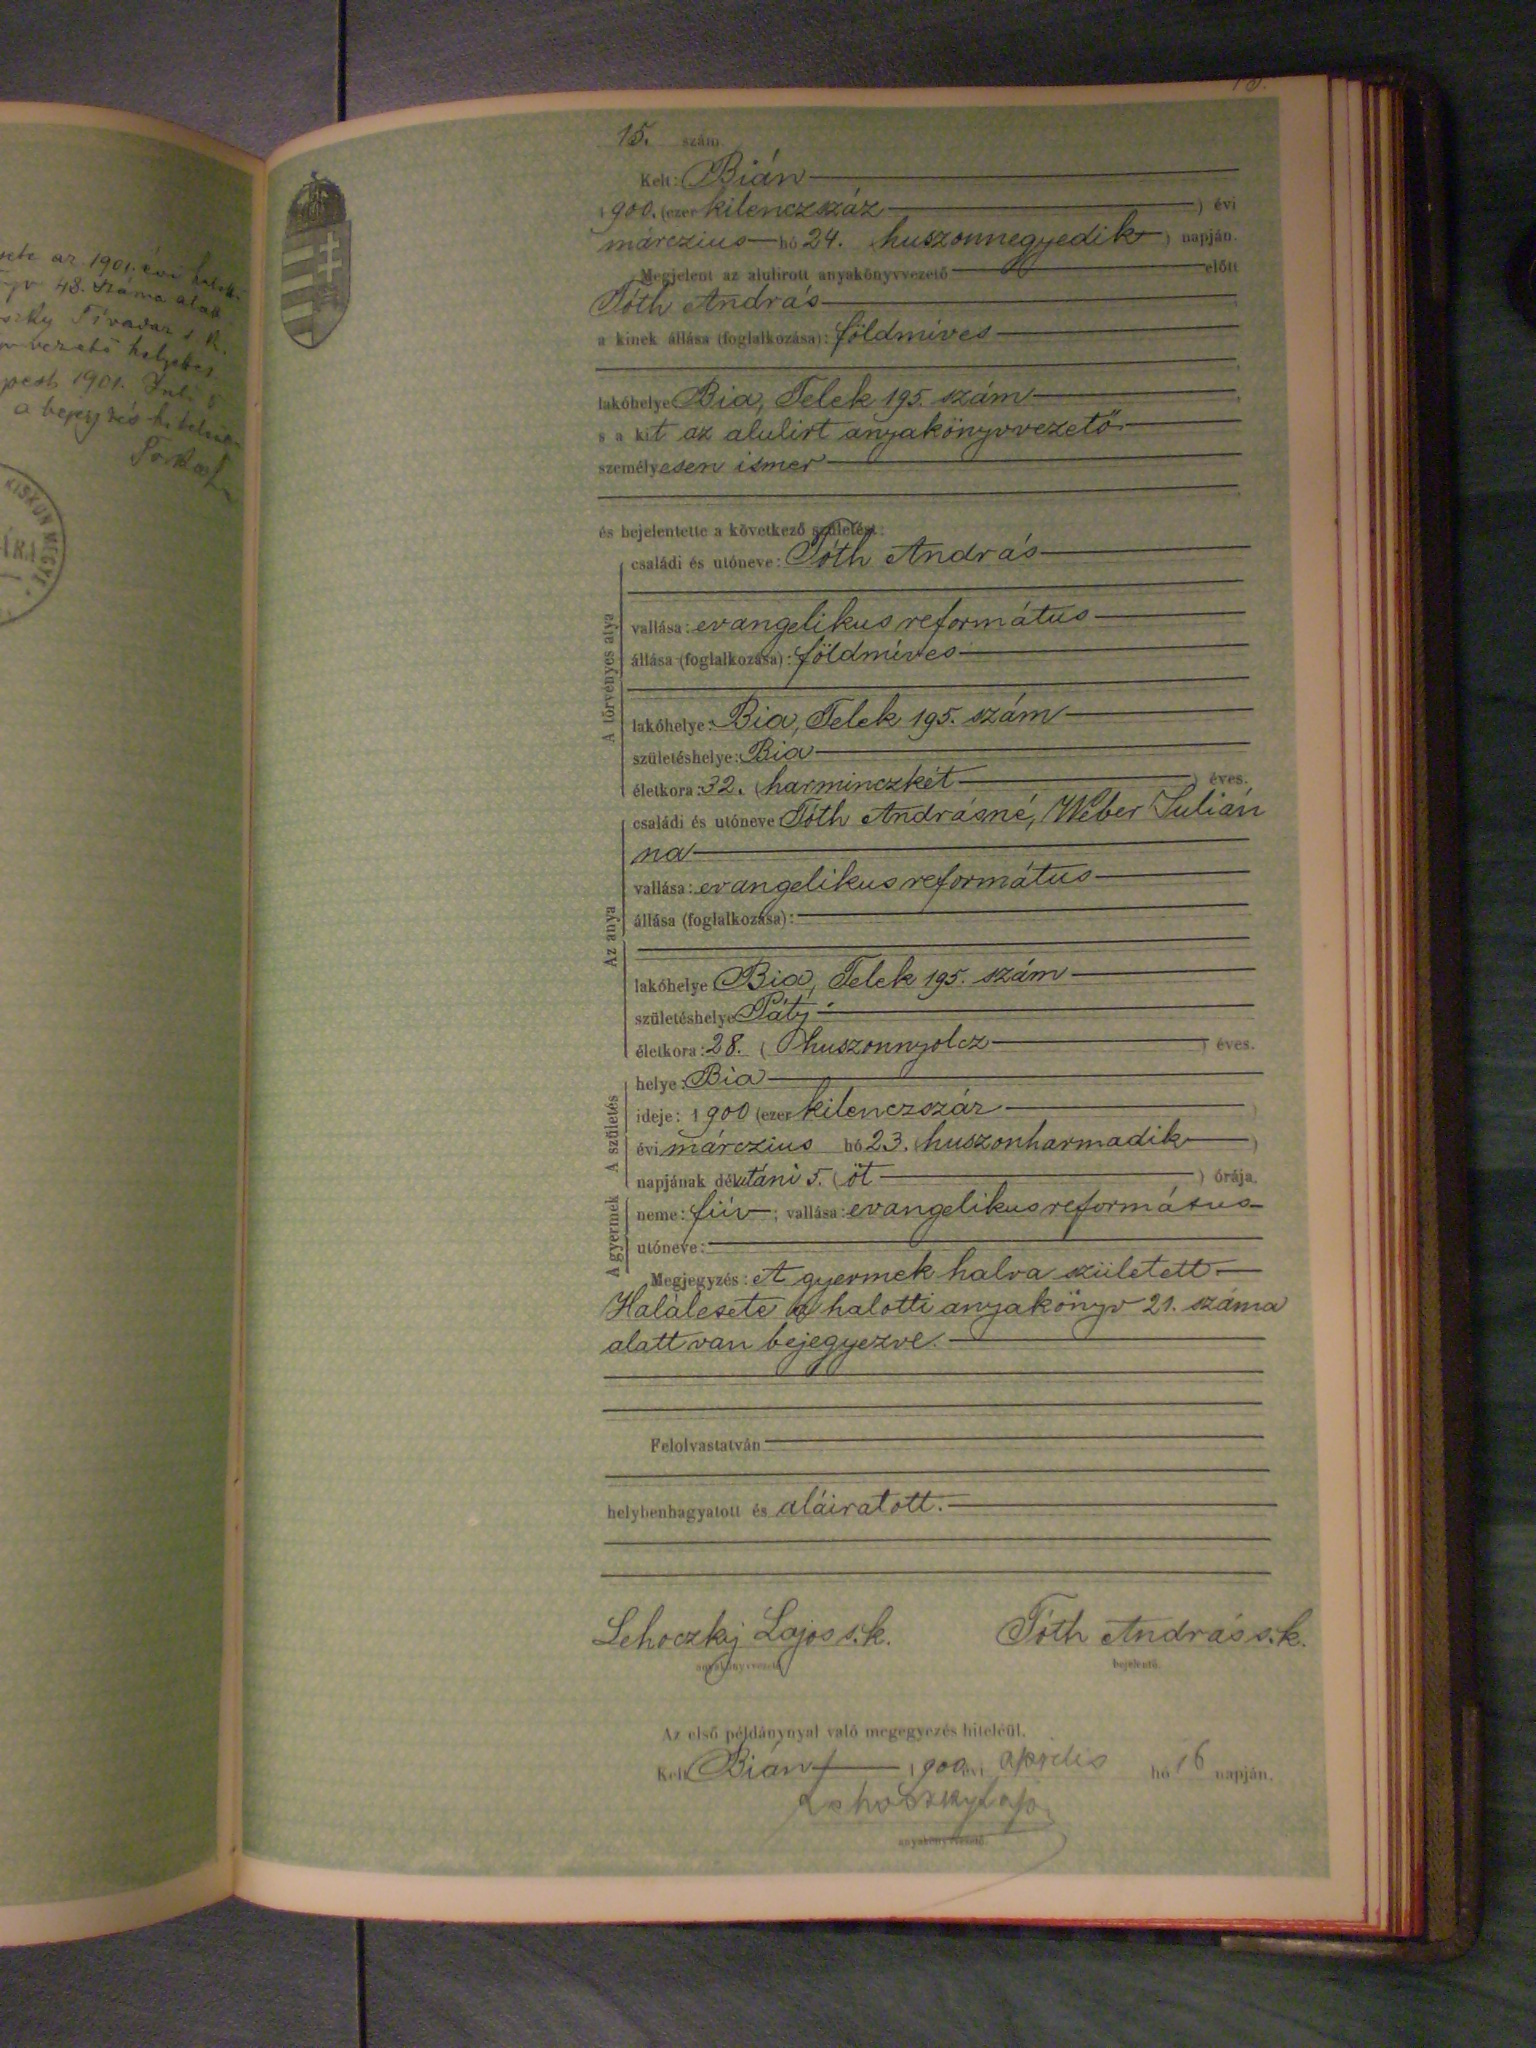 sete az 1901. évi halotti
48. száma alatt
Tivadar s. k.
vezető helyettes
pest 1901.
a bejegyzés hiteléül
KISKUN MEGYE
15. szám
Kelt: Bián
1900. (ezer kilenczszáz ) évi
márczius hó 24. (huszonnegyedik) napján.
Megjelent az alulirott anyakönyvvezető előtt
Tóth András
a kinek állása (foglalkozása): földmives
lakóhelye: Bia, Telek 195. szám
s a kit az alulirt anyakönyvvezető
személyesen ismer
és bejelentette a következő születést:
A törvényes atya
családi és utóneve: Tóth András
vallása: evangelikus református
állása (foglalkozása): földmives
lakóhelye: Bia, Telek 195. szám
születéshelye: Bia
életkora: 32. (harminczkét ) éves.
Az anya
családi és utóneve Tóth Andrásné, Weber Julián
na
vallása: evangelikus református
állása (foglalkozása):
lakóhelye Bia, Telek 195. szám
születéshelye Páty
életkora: 28. (huszonnyolcz ) éves.
A születés
helye: Bia
ideje: 1900 (ezer kilenczszáz )
évi márczius hó 23. (huszonharmadik )
napjának délutáni 5. (öt ) órája.
A gyermek
neme: fiú ; vallása: evangelikus református
utóneve:
Megjegyzés: A gyermek halva született
Halálesete a halotti anyakönyv 21. száma
alatt van bejegyezve.
Felolvastatván
helybenhagyatott és aláiratott.
Lehoczky Lajos s. k. Tóth András s. k.
anyakönyvvezető bejelentő.
Az első példánynyal való megegyezés hiteléül.
Kelt Bián 1900 évi április hó 16 napján.
Lehoczky Lajos
anyakönyvvezető.